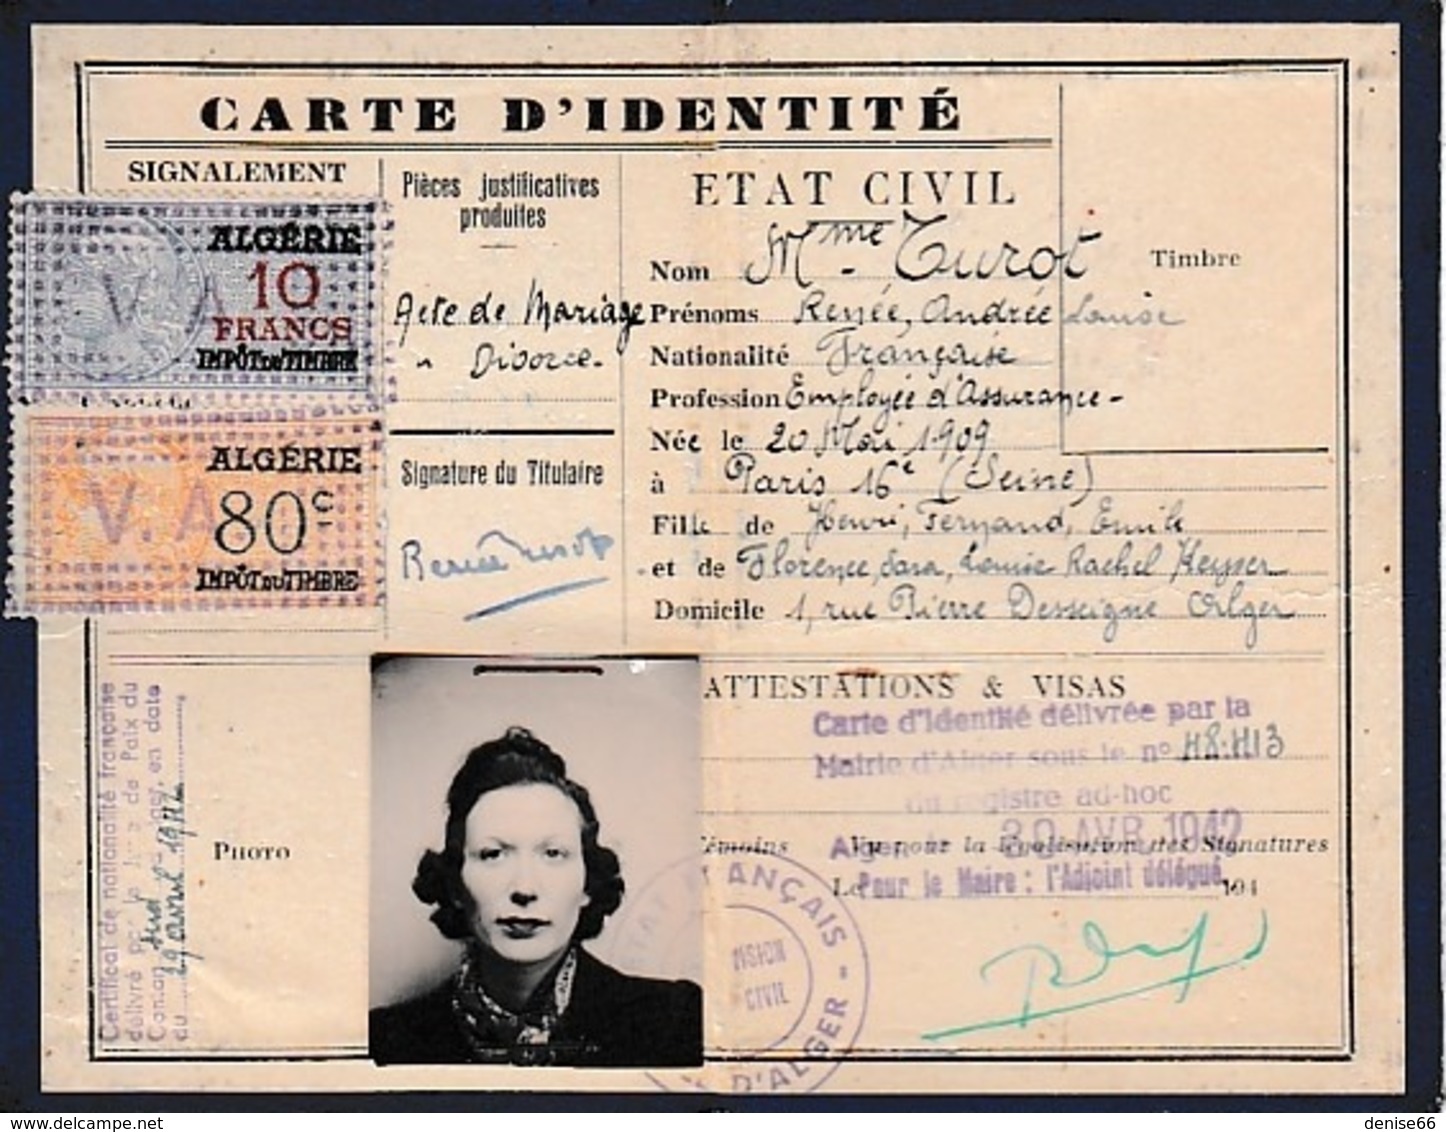 CARTE D'IDENTITÉ
SIGNALEMENT
ALGÉRIE
10
FRANCS
IMPÔT DU TIMBRE
V.A
ALGÉRIE
80 c
IMPÔT DU TIMBRE
V.A
Pièces justificatives
produites
Acte de Mariage
" Divorce-
Signature du Titulaire
Renée Turot
ETAT CIVIL
Nom Mme Turot
Prénoms Renée, Andrée Louise
Nationalité Française
Profession Employée d'Assurance-
Née le 20 Mai 1909
à Paris 16e (Seine)
Fille de Henri, Fernand, Emile
et de Florence, Sara, Louise Rachel Keyser
Domicile 1, rue Pierre Desseigne Alger
Timbre
Certificat de nationalité française
délivré par le Juge de Paix du
Canton Sud d'Alger, en date
du 29 avril 1942
PHOTO
ATTESTATIONS & VISAS
Carte d'identité délivrée par la
Mairie d'Alger sous le no 48.413
du registre ad-hoc
Alger le 30 AVR 1942
Témoins Vu pour la légalisation des Signatures
Le 194
Pour le Maire : l'Adjoint délégué
ETAT FRANÇAIS
CIVIL
D'ALGER
denise66